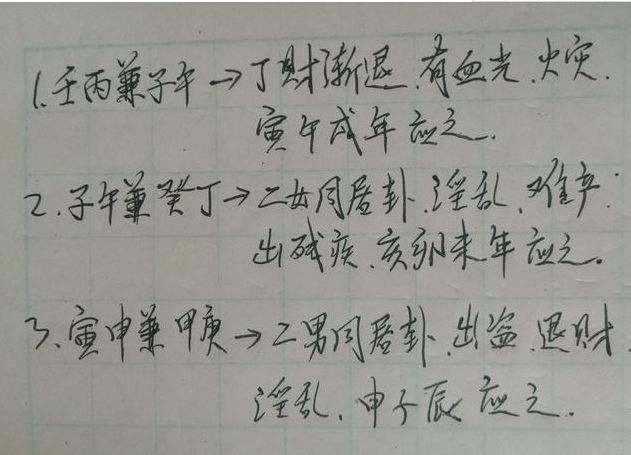 1.壬丙兼子午→丁财渐退.有血光.火灾.
寅午戌年应之.
2.子午兼癸丁→二女同居卦.淫乱.难产.
出残疾.亥卯未年应之。
3.寅申兼甲庚→二男同居卦.出盗.退财.
淫乱.申子辰应之.